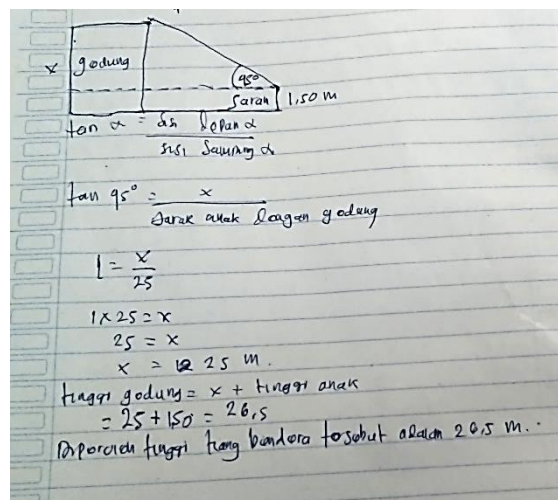 x godung
95°
Jarak 1,50 m
tan α = sisi depan α / sisi samping α
tan 95° = x / Jarak anak dengan godung
1 = x / 25
1 x 25 = x
25 = x
x = 25 m.
tinggi godung = x + tinggi anak
= 25 + 150 = 26,5
Diperoleh tinggi tiang bendera tosebut adalah 26,5 m.